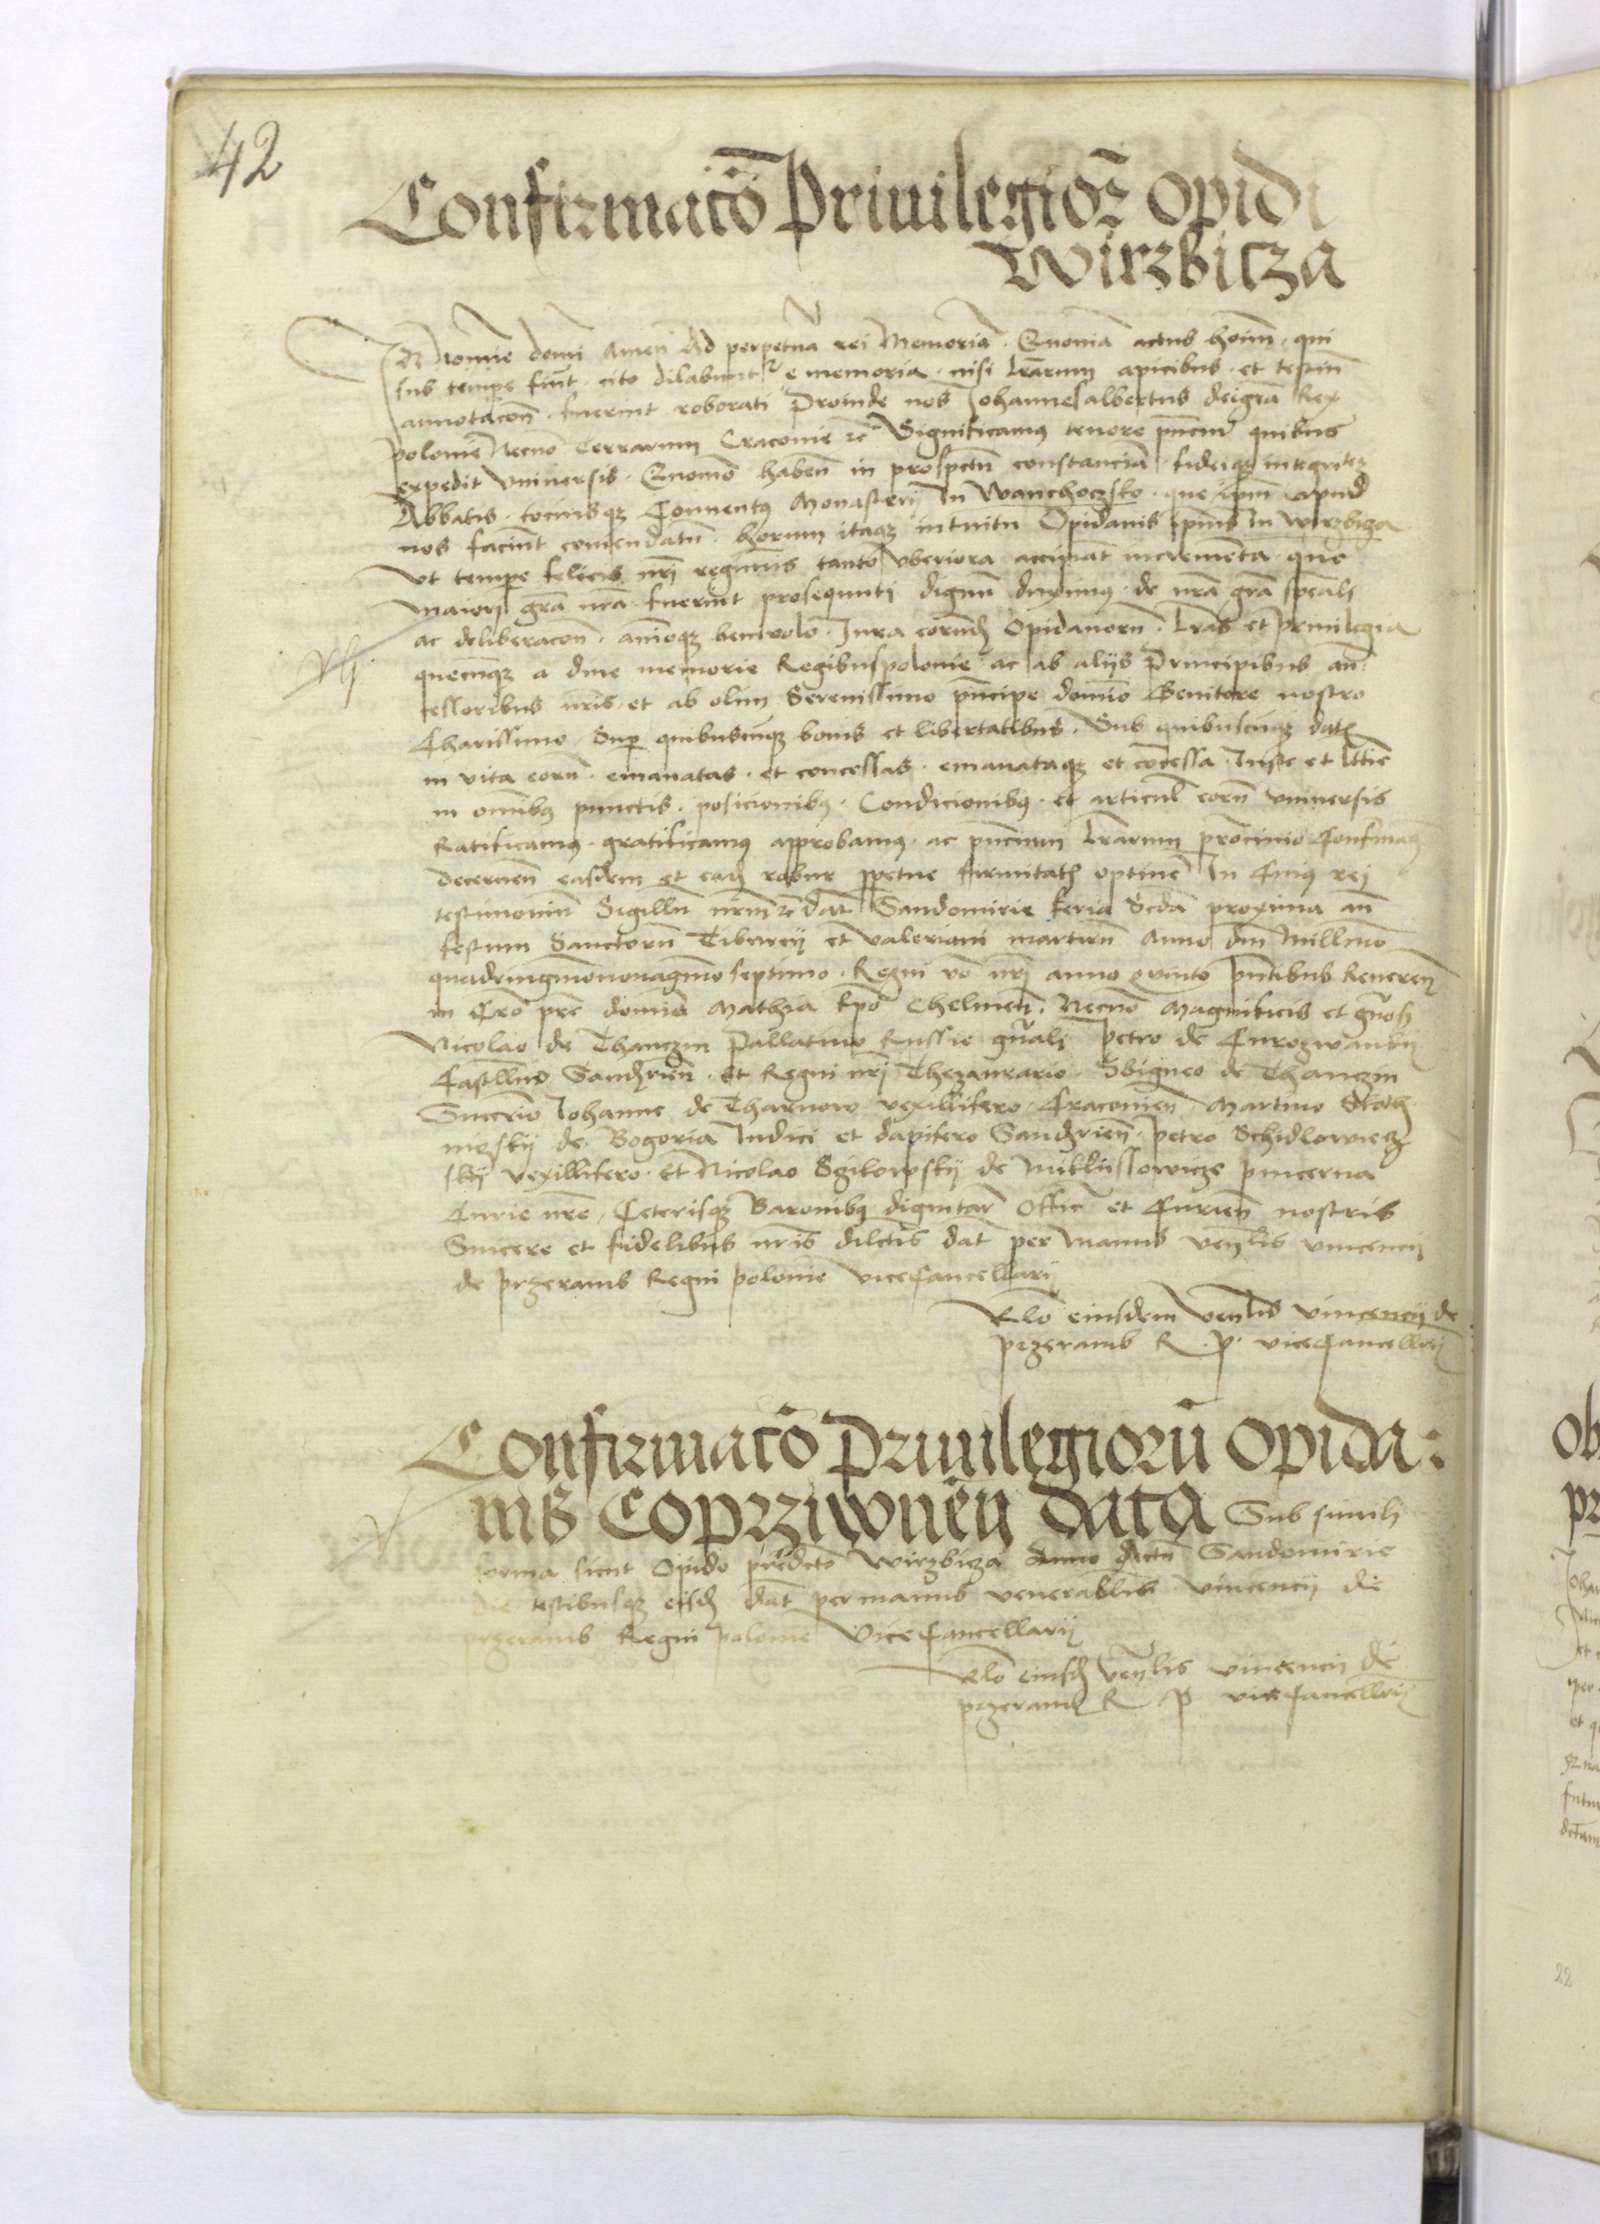 42
Confirmatō Priuilegiorꝝ opidi
Wirzbicza
In Nomīe domī Amen Ad perpetuā rei Memoriā . Quoniā actus hoīm . qui
sub tempe fiūt . cito dilabunt᷑ e memoria . nisi lr̄arum apicibus . et testiū
annotacoēn . fuerint roborati Proinde nos Johannes albertus dei gr̄a Rex
polonie Necnō terrarum Cracouie ꝛc̄ Significamꝰ tenore pn̄ciū quibus
expedit vniuersis . Quomō haben̄ in prospectū constanciā . fideiqꝫ integritꝫ
Abbatis . tociusqꝫ Conuentꝰ Monasterij In Wanchoczsko . que ip̄m apud
nos faciūt comendatū . horum itaqꝫ intuitu Opidanis ip̄ius In wirzbicza
vt tempe felicis nr̄i regimīs tanto vberiora accipiāt incrementa que
maiorj gr̄a nr̄a fuerint prosequuti dignū duximꝰ . de nr̄a gr̄a spēali
ac deliberacoēn . animoqꝫ beniuolo . Jura eorundꝫ Opidanorū . Lr̄as et Priuilegia
quecūqꝫ a diue memorie Regibus polonie ac ab alijs Principibus an̄
cessoribus nr̄is . et ab olim Serenissimo pn̄cipe domīo Genitore nostro
Charissimo Sup̱ quibuscūqꝫ bonis et libertatibus . Sub quibuscūqꝫ datꝫ
in vita eorū . emanatas . et concessas . emanataqꝫ et cōcessa Juste et lttie
in omībꝰ punctis . posicionibꝰ . Condicionibꝰ . et articul̄ eorū vniuersis
Ratificamꝰ . gratificamꝰ approbamꝰ . ac pn̄cium lr̄arum procinio Confirmaꝰ
decernen̄ easdem et eadꝫ robur ꝑpetue firmitatꝫ optinē In Cuiꝰ rej
testimoniū Sigillū nr̄m ꝛc̄ dat̄ Sandomirie feria Scd̄a proxima an̄
festum Sanctorū Tiburcij et valeriani martirū Anno dn̄i Millīmo
quadringmōnonagmōseptimo . Regni vō nr̄j anno quinto pn̄tibus Reueren̄
in Cr̄o pr̄e domīo Mathia Ep̄o Chelmen̄ . Necnō Magnificis et gn̄osꝫ
Nicolao de Thanczin Pallatino Russie gn̄alj Petro de Curozwankij
Castll̄no Sandꝫrien̄ . Et Regni nr̄j Thezaurario . Sbigneo de Thanczin
Succrio Johanne de Tharnow vexillifero Cracouien̄ Martino Skoth
niczkij de Bogoria Judici et dapifero Sandꝫrien̄ . petro Schidlowiecz
skij vexillifero . Et Nicolao Sgilowskij de Miklussowicze pincerna
Curie nr̄e . Ceterisqꝫ Baronibꝰ dignitar̄ Offic̄ et Curien̄ nostris
Sincere et fidelibus nr̄is dilctis dat̄ per manus ven̄lis vincencij
de przeramb Regni polonie viceCancellarij
Rlō eiusdem ven̄lis vincencij de
przeramb R . P . viceCancellrij
Confirmatō Priuilegiorū opida:
nis Coprziwnen̄ data Sub simili
forma sicut Opido predicto Wirzbicza Anno Actū Sandomirie
die testibusqꝫ eisdꝫ dat̄ per manus venerablis vincencij de
przeramb Regni polonie ViceCancellarij
Rlō eiusdꝫ ven̄lis vincencij de
przeramb R P viceCancellrij
22